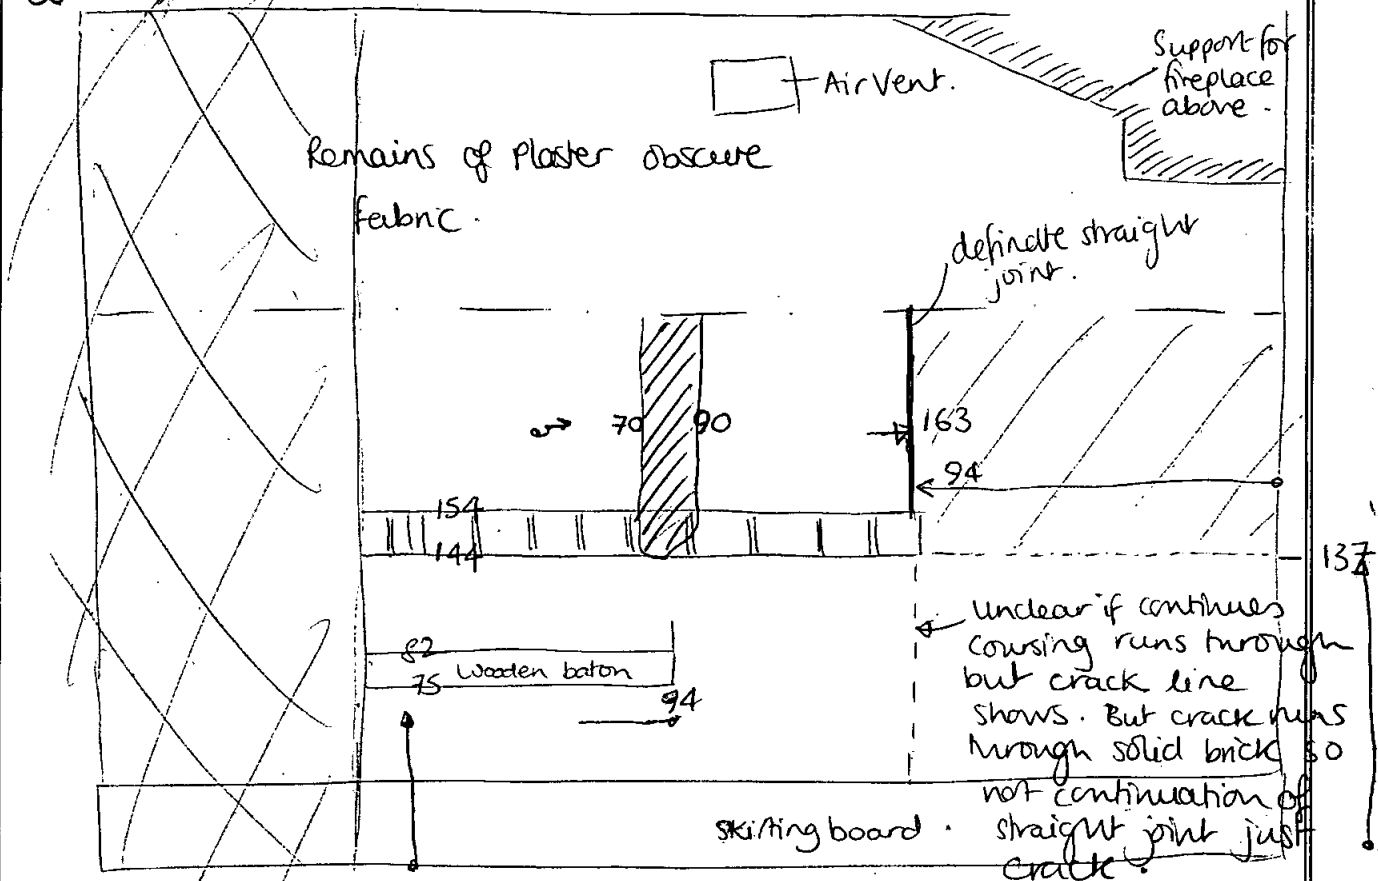 Support for
fireplace
above.
Air Vent.
Remains of Plaster obscure
fabric.
definate straight
joint.
70
90
163
94
154
144
137
unclear if continues
coursing runs through
but crack line
shows. But crack runs
through solid brick so
not continuation of
straight joint just
crack.
82
Wooden baton
75
94
skirting board.